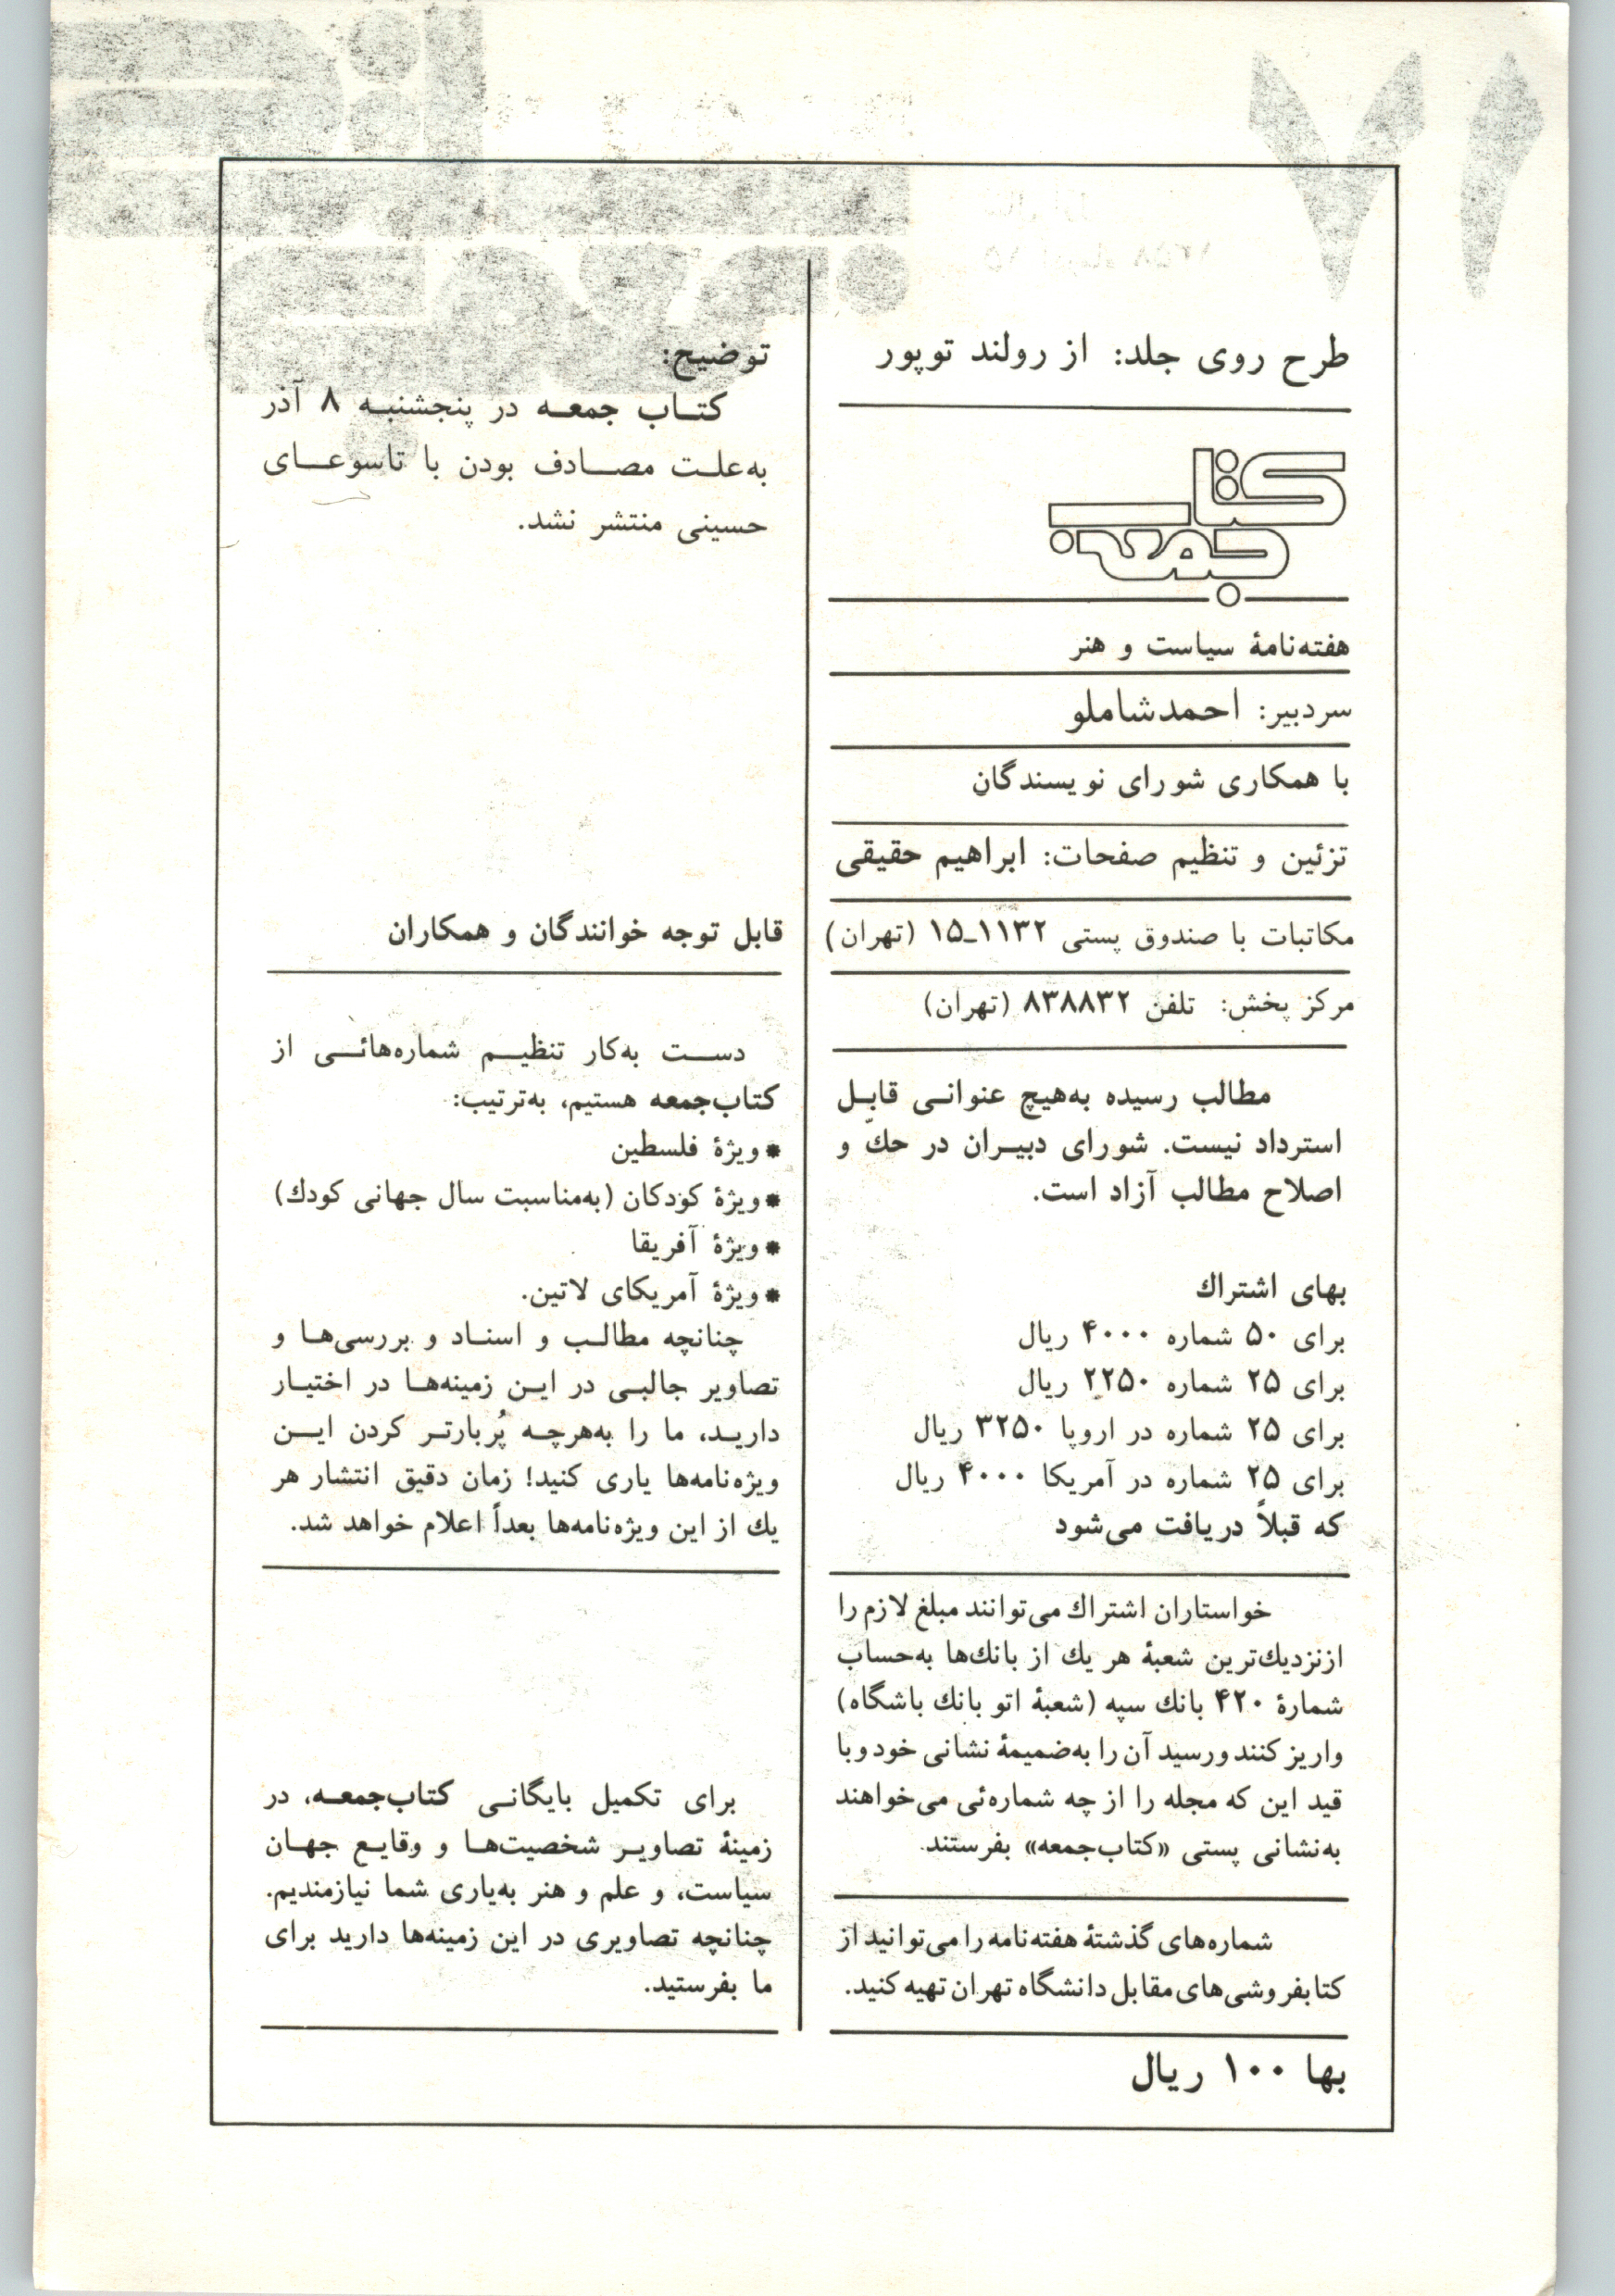 طرح روی جلد: از رولند توپور
کتاب
جمعه
هفته‌نامهٔ سیاست و هنر
سردبیر: احمدشاملو
با همکاری شورای نویسندگان
تزئین و تنظیم صفحات: ابراهیم حقیقی
مکاتبات با صندوق پستی ۱۱۳۲ـ۱۵ (تهران)
مرکز پخش: تلفن ۸۳۸۸۳۲ (تهران)
مطالب رسیده به‌هیچ عنوانی قابل
استرداد نیست. شورای دبیران در حكّ و
اصلاح مطالب آزاد است.
بهای اشتراك
برای ۵۰ شماره ۴۰۰۰ ریال
برای ۲۵ شماره ۲۲۵۰ ریال
برای ۲۵ شماره در اروپا ۳۲۵۰ ریال
برای ۲۵ شماره در آمریکا ۴۰۰۰ ریال
که قبلاً دریافت می‌شود
خواستاران اشتراك می‌توانند مبلغ لازم را
ازنزدیك‌ترین شعبهٔ هر یك از بانك‌ها به‌حساب
شمارهٔ ۴۲۰ بانك سپه (شعبهٔ اتو بانك باشگاه)
واریز کنند ورسید آن را به‌ضمیمهٔ نشانی خود وبا
قید این که مجله را از چه شماره‌ئی می‌خواهند
به‌نشانی پستی «کتاب‌جمعه» بفرستند.
شماره‌های گذشتهٔ هفته‌نامه را می‌توانید از
کتابفروشی‌های مقابل دانشگاه تهران تهیه کنید.
بها ۱۰۰ ریال
توضیح:
کتاب جمعه در پنجشنبه ۸ آذر
به‌علت مصادف بودن با تاسوعای
حسینی منتشر نشد.
قابل توجه خوانندگان و همکاران
دست به‌کار تنظیم شماره‌هائی از
کتاب‌جمعه هستیم، به‌ترتیب:
* ویژهٔ فلسطین
* ویژهٔ کودکان (به‌مناسبت سال جهانی کودك)
* ویژهٔ آفریقا
* ویژهٔ آمریکای لاتین.
چنانچه مطالب و اسناد و بررسی‌ها و
تصاویر جالبی در این زمینه‌ها در اختیار
دارید، ما را به‌هرچه پُربارتر کردن این
ویژه‌نامه‌ها یاری کنید! زمان دقیق انتشار هر
یك از این ویژه‌نامه‌ها بعداً اعلام خواهد شد.
برای تکمیل بایگانی کتاب‌جمعه، در
زمینهٔ تصاویر شخصیت‌ها و وقایع جهان
سیاست، و علم و هنر به‌یاری شما نیازمندیم.
چنانچه تصاویری در این زمینه‌ها دارید برای
ما بفرستید.